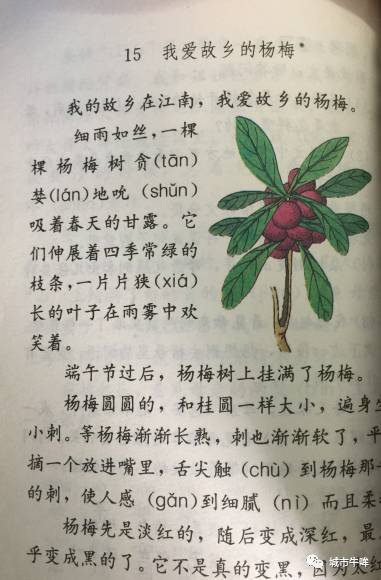 15 我爱故乡的杨梅*
我的故乡在江南，我爱故乡的杨梅。
细雨如丝，一棵
棵杨梅树贪(tān)
婪(lán)地吮(shǔn)
吸着春天的甘露。它
们伸展着四季常绿的
枝条，一片片狭(xiá)
长的叶子在雨雾中欢
笑着。
端午节过后，杨梅树上挂满了杨梅。
杨梅圆圆的，和桂圆一样大小，遍身
小刺。等杨梅渐渐长熟，刺也渐渐软了，平
摘一个放进嘴里，舌尖触(chù)到杨梅那
的刺，使人感(gǎn)到细腻(nì)而且柔
杨梅先是淡红的，随后变成深红，最
乎变成黑的了。它不是真的变黑，因为太红
城市牛哞